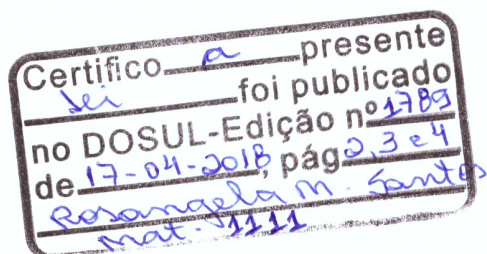 Certifico a presente
Lei foi publicado
no DOSUL-Edição nº 1789
de 17-04-2018, pág 2,3 e 4
Rosangela M. Santos
mat. 1111